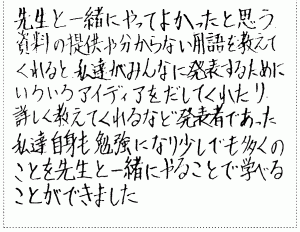 先生と一緒にやってよかったと思う
資料の提供や分からない用語を教えて
くれると私達がみんなに発表するために
いろいろアイディアをだしてくれたり
詳しく教えてくれるなど発表者であった
私達自身も勉強になり少しでも多くの
ことを先生と一緒にやることで学べる
ことができました